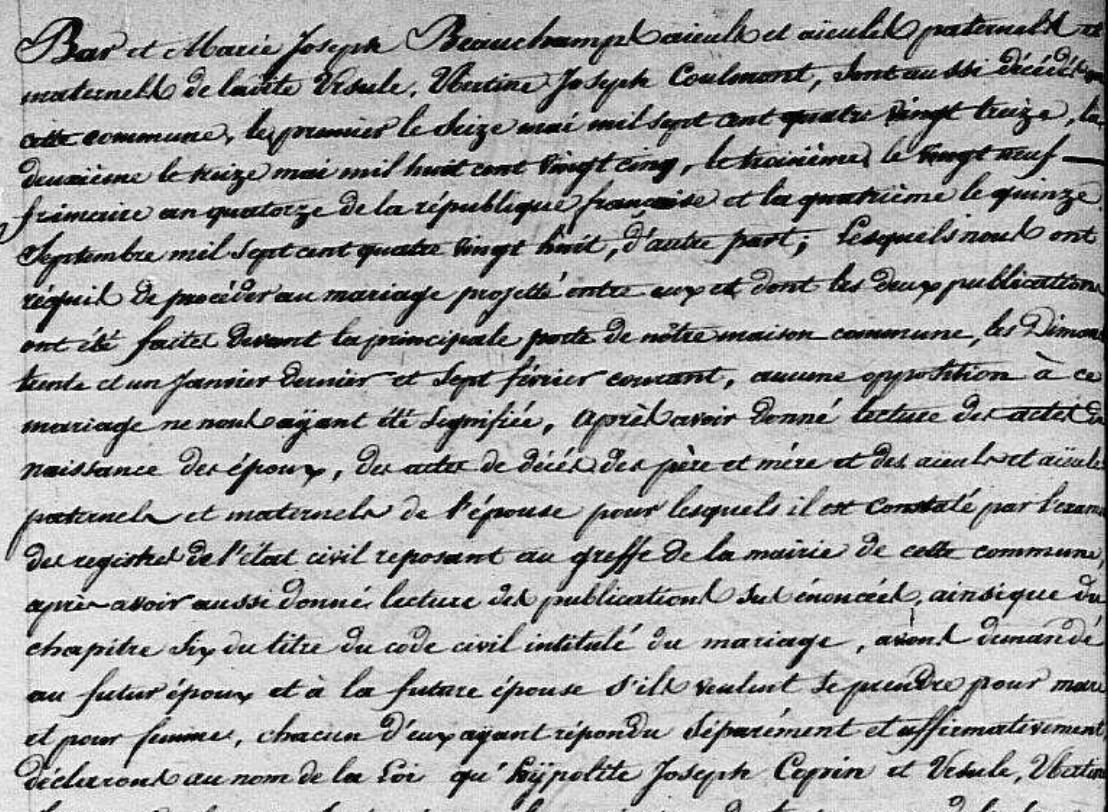 Bar et Marie Joseph Beauchamps aieuls et aïeules paternels et
maternels de ladite Ursule, Ubertine Joseph Coulmont, sont aussi décédés en
cette commune, le premier le seize mai mil sept cent quatre vingt treize, la
deuxième le treize mai mil huit cent vingt cinq, le troisième le vingt neuf
frimaire an quatorze de la république française et la quatrième le quinze
Septembre mil sept cent quatre vingt huit, d'autre part; Lesquels nous ont
réquis de procéder au mariage projetté entre eux et dont les deux publications
ont été faites devant la principale porte de nôtre maison commune, les Diman
trente et un Janvier dernier et sept février courant, aucune opposition à ce
mariage ne nous ayant été signifiée, après avoir donné lecture des actes de
naissance des époux, des actes de décés des père et mére et des aïeuls et aïeules
paternels et maternels de l'épouse pour lesquels il est constaté par l'exam
des registres de l'état civil reposant au greffe de la mairie de cette commune,
après avoir aussi donné lecture des publications sus énoncées, ainsi que du
chapitre six du titre du code civil intitulé du mariage, avons demandé
au futur époux et à la future épouse s'ils veulent se prendre pour mari
et pour femme, chacun d'eux ayant répondu séparément et affirmativement,
déclarons au nom de la Loi qu'hÿpolite Joseph Ceprin et Ursule, Ubertine